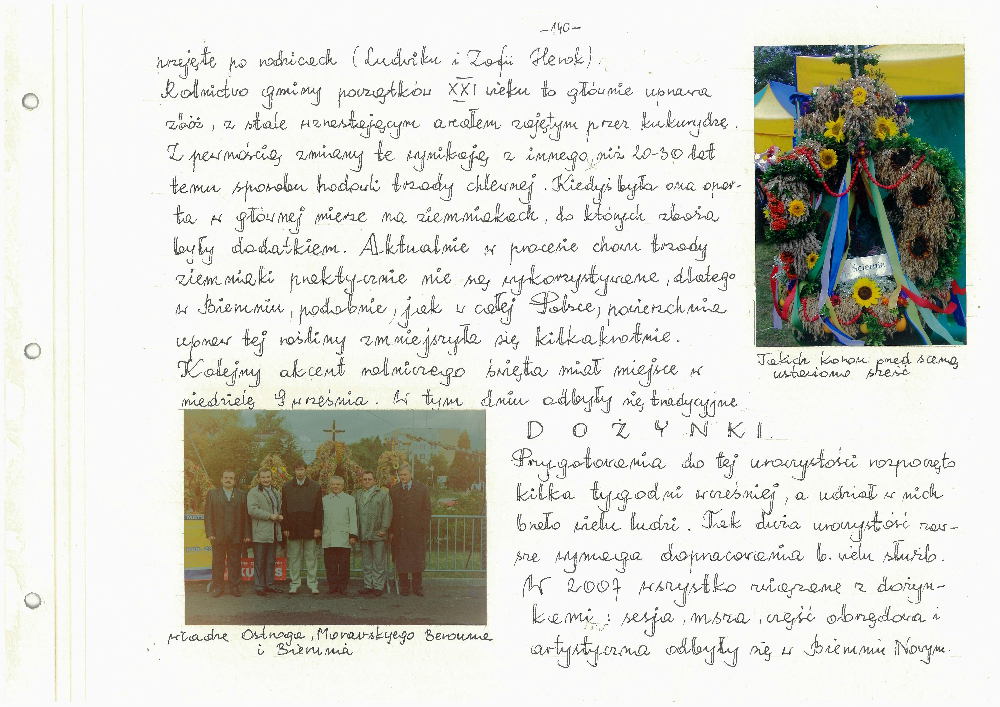 -140-
przejęte po rodzicach (Ludwiku i Zofii Herok).
Rolnictwo gminy początków XXI wieku to głównie uprawa
zbóż, z stale wzrastającym areałem zajętym przez kukurydzę.
Z pewnością zmiany te wynikają z innego, niż 20-30 lat
temu sposobu hodowli trzody chlewnej. Kiedyś była ona opar-
ta w głównej mierze na ziemniakach, do których zboża
były dodatkiem. Aktualnie w procesie chowu trzody
ziemniaki praktycznie nie są wykorzystywane, dlatego
w Bierawie, podobnie, jak w całej Polsce, powierzchnia
upraw tej rośliny zmniejszyła się kilkakrotnie.
Kolejny akcent rolniczego święta miał miejsce w
niedzielę 9 września. W tym dniu odbyły się tradycyjne
DOŻYNKI.
Przygotowania do tej uroczystości rozpoczęto
kilka tygodni wcześniej, a udział w nich
brało wielu ludzi. Tak duża uroczystość zaw-
sze wymaga dopracowania b. wielu służb.
W 2007 wszystko związane z dożyn-
kami: sesja, msza, część obrzędowa i
artystyczna odbyły się w Nowym.
Takich koron przed sceną
ustawiono sześć
władze Ostroga, Moravskyego Berouna
i